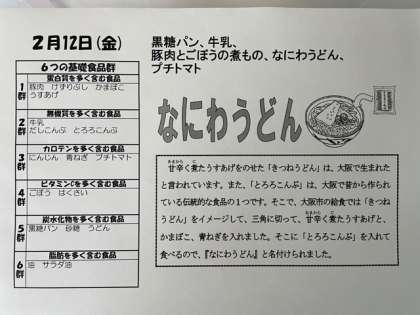 2月12日（金）
黒糖パン、牛乳、
豚肉とごぼうの煮もの、なにわうどん、
プチトマト
6つの基礎食品群
1群
蛋白質を多く含む食品
豚肉 けずりぶし かまぼこ
うすあげ
2群
無機質を多く含む食品
牛乳
だしこんぶ とろろこんぶ
3群
カロテンを多く含む食品
にんじん 青ねぎ プチトマト
4群
ビタミンCを多く含む食品
ごぼう はくさい
5群
炭水化物を多く含む食品
黒糖パン 砂糖 うどん
6群
脂肪を多く含む食品
油 サラダ油
なにわうどん
甘辛く煮たうすあげをのせた「きつねうどん」は、大阪で生まれた
と言われています。また、「とろろこんぶ」は、大阪で昔から作られ
ている伝統的な食品の1つです。そこで、大阪市の給食では「きつね
うどん」をイメージして、三角に切って、甘辛く煮たうすあげと、
かまぼこ、青ねぎを入れました。そこに「とろろこんぶ」を入れて
食べるので、『なにわうどん』と名付けられました。